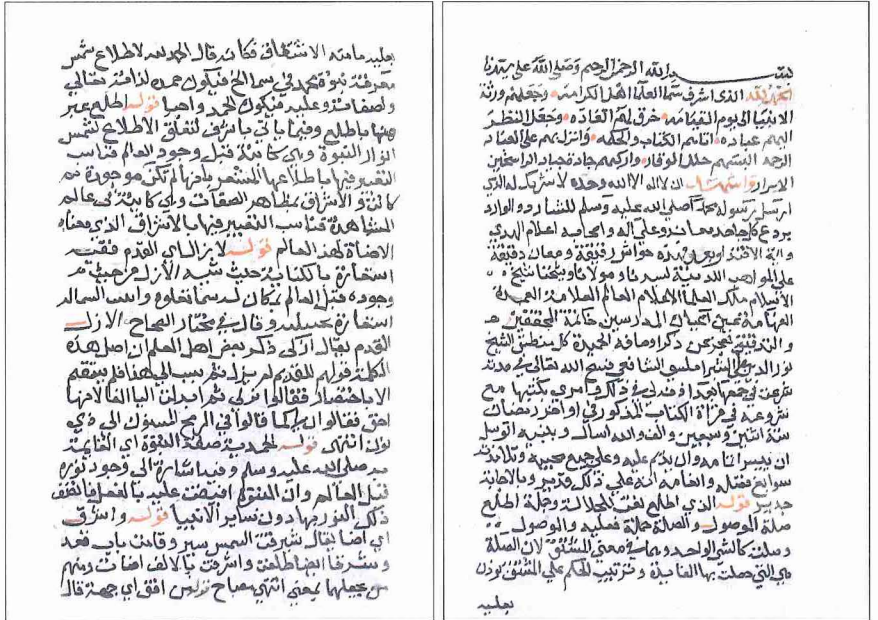 بسم الله الرحمن الرحيم وصلى الله على سيدنا
الحمد لله الذي اشرق سما العلما اهل الكرامه وجعلهم ورثة
الانبيا الى يوم القيامه خرق لهم العاده وجعل النظر
اليهم عباده اتاهم الكتاب والحكمه وانزل بهم على العباد
الرحمه البسهم حلل الوقار واركبهم جياد الراسخين
الاسرار واشهد ان لا اله الا الله وحده لا شريك له الذي
ارسل رسوله محمدا صلى الله عليه وسلم للشارد والوارد
يردع كل جاحد ومعاند وعلى اله واصحابه اعلام الهدى
وبعد فهذه حواش رقيقة ومعان دقيقة
على المواهب اللدنية لسيدنا ومولانا وشيخنا شيخ
الاسلام ملك العلما الاعلام العالم العلامة العمدة
الفهامة عين اعيان المدرسين خاتمة المحققين
والتدقيق يعجز عن ذكر اوصافه الحميدة كل منطيق الشيخ
نور الدين علي الشبراملسي الشافعي فسح الله تعالى في مدته
شرعت في جمعها بعد اذنه لي في ذلك وامري بكتبها مع
شروعه في قراة الكتاب المذكور في اواخر رمضان
سنة اثنين وسبعين والف والله اسال وبنبيه اتوسل
ان ييسر اتمامه وان يديم عليه وعلى جميع محبيه وتلامذته
سوابغ فضله وانعامه انه على ذلك قدير وبالاجابة
جدير قوله الذي اطلع نعت للجلالة وجملة اطلع
صلة الموصول والصلة جملة فعلية والموصول
وصلته كالشي الواحد وهما في معنى المشتق لان الصلة
هي التي حصلت بها الفايدة وترتيب الحكم على المشتق يوذن
بعلية
بعلية ما منه الاشتقاق فكانه قال الحمد لله لاطلاع شمس
معرفة نبوة محمد في سما الخ فيكون حمده لذاته تعالى
ولصفاته وعليه فيكون الحمد واجبا قوله اطلع عبر
هنا باطلع وفيما ياتي باشرق لتعلق الاطلاع بشمس
انوار النبوة وهي كاينة قبل وجود العالم فناسب
التعبير فيها باطلاعها المشعر بانها لم تكن موجودة ثم
كانت والاشراق بمظاهر الصفات وهي كاينة في عالم
المشاهدة فناسب التعبير فيها بالاشراق الذي معناه
الاضاة لهذا العالم قوله الازل اي القدم ففيه
استعارة بالكناية حيث شبه الازل من حيث
وجوده قبل العالم بمكان له سما تعلوه واثبت السما له
استعارة تخييلية وقال في مختار الصحاح الازل
القدم يقال ازلي ذكر بعض اهل العلم ان اصل هذه
الكلمة قولهم للقديم لم يزل ثم نسب الى هذا فلم يستقم
الا باختصار فقالوا يزلي ثم ابدلت اليا الفا لانها
اخف فقالوا ازلي كما قالوا في الرمح المنسوب الى ذي
يزن انتهى قوله المحمدية صفة النبوة اي القايمة
به صلى الله عليه وسلم وفيه اشارة الى وجود نوره
قبل العالم وان النبوة افيضت عليه بالفعل فاتصف
ذلك النور بها دون ساير الانبيا قوله واشرق
اي اضا يقال شرقت الشمس من باب قعد
وشرقا ايضا طلعت واشرقت بالالف اضات ومنهم
من يجعلهما بمعنى انتهى مصباح قوله من افق اي جهة قال